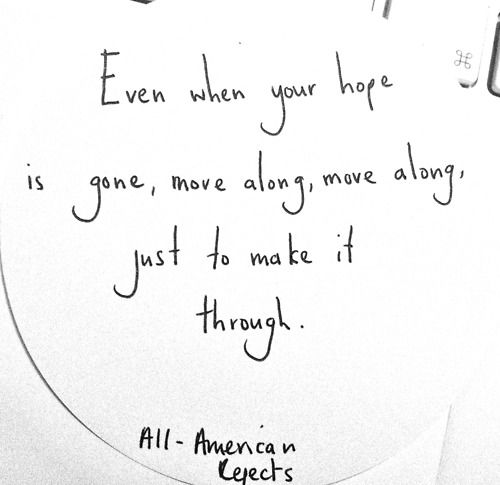 Even when your hope
is gone, move along, move along,
just to make it
through.
All-American
Rejects
⌘